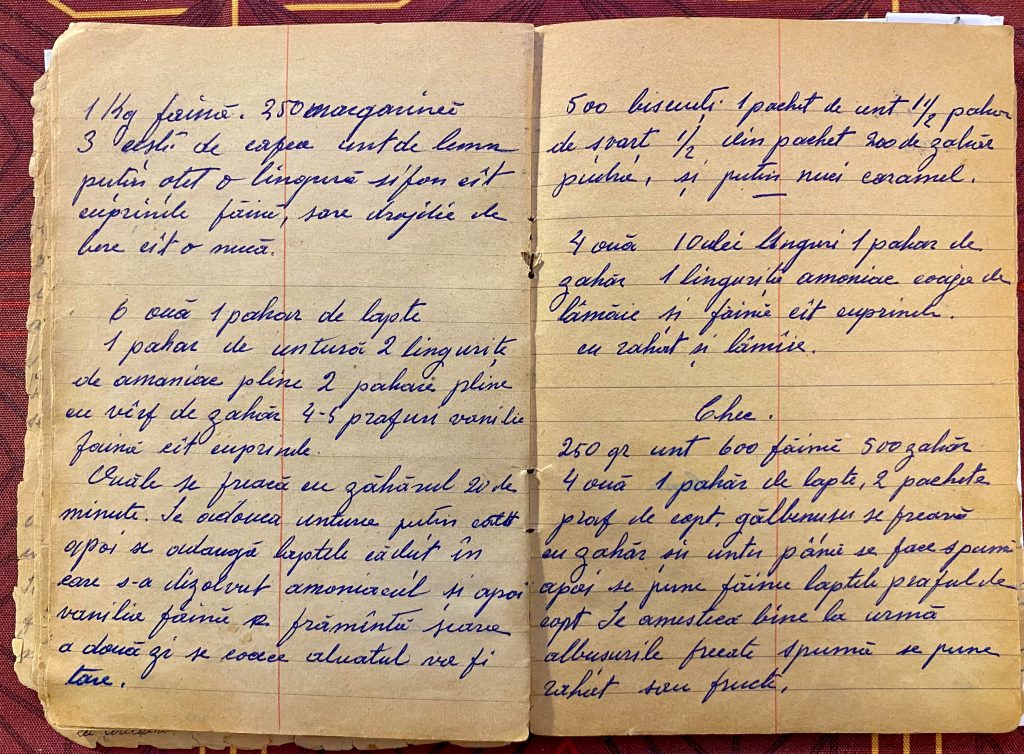 1 Kg faină. 250 margarină
3 cești de cafea unt de lemn
putin otet o lingură sifon cît
cuprinde făină, sare drojdie de
bere cît o nucă.
6 ouă 1 pahar de lapte
1 pahar de untură 2 lingurițe
de amoniac pline 2 pahare pline
cu vîrf de zahăr 4-5 prafuri vanilie
faină cît cuprinde.
Ouăle se freacă cu zahărul 20 de
minute. Se adauca untura putin
apoi se adaugă laptele căldut în
care s-a dizolvat amoniacul si apoi
vanilia faină se frămîntă seara
a două zi se coace aluatul va fi
tare.
500 biscuiti 1 pachet de unt 1 1/2 pahar
de svart 1/2 din pachet 200 de zahăr
pudră, și putin nuci caramel.
4 ouă 10 ulei linguri 1 pahar de
zahăr 1 linguriță amoniac coaja de
lămâie si faină cît cuprinde.
cu rahat și lămîie.
Chec.
250 gr unt 600 făină 500 zahăr
4 ouă 1 pahăr de lapte, 2 pachete
praf de copt, gălbenusu se freacă
cu zahăr si untu până se face spumă
apoi se pune făina laptele praful de
copt Se amestică bine la urmă
albusurile frecate spumă se pune
rahat sau fructe.